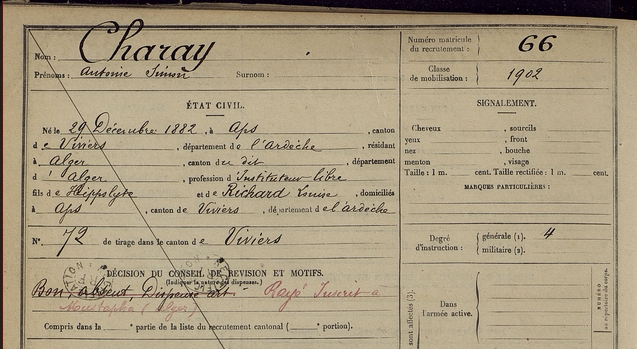 Nom: Charay
Prénoms: Antoine Simon Surnom:
ÉTAT CIVIL.
Né le 29 Décembre 1882, à Aps, canton
de Viviers, département de l'Ardèche, résidant
à Alger, canton du dit, département
d'Alger, profession d'Instituteur libre
fils de Hippolyte et de Richard Louise, domiciliés
à Aps, canton de Viviers, département de l'Ardèche
N° 72 de tirage dans le canton de Viviers
DÉCISION DU CONSEIL DE REVISION ET MOTIFS.
(Indiquer la nature des dispenses.)
Bon, absent, Dispensé art Rayé Inscrit à
Moustapha (Alger)
Compris dans la partie de la liste du recrutement cantonal ( portion).
Numéro matricule du recrutement: 66
Classe de mobilisation: 1902
SIGNALEMENT.
Cheveux , sourcils
yeux , front
nez , bouche
menton , visage
Taille: 1 m. cent. Taille rectifiée: 1 m. cent.
MARQUES PARTICULIÈRES:
Degré d'instruction: générale (1). 4
militaire (2).
Dans l'armée active.
sont affectés (3).
NUMÉRO
au répertoire du corps.